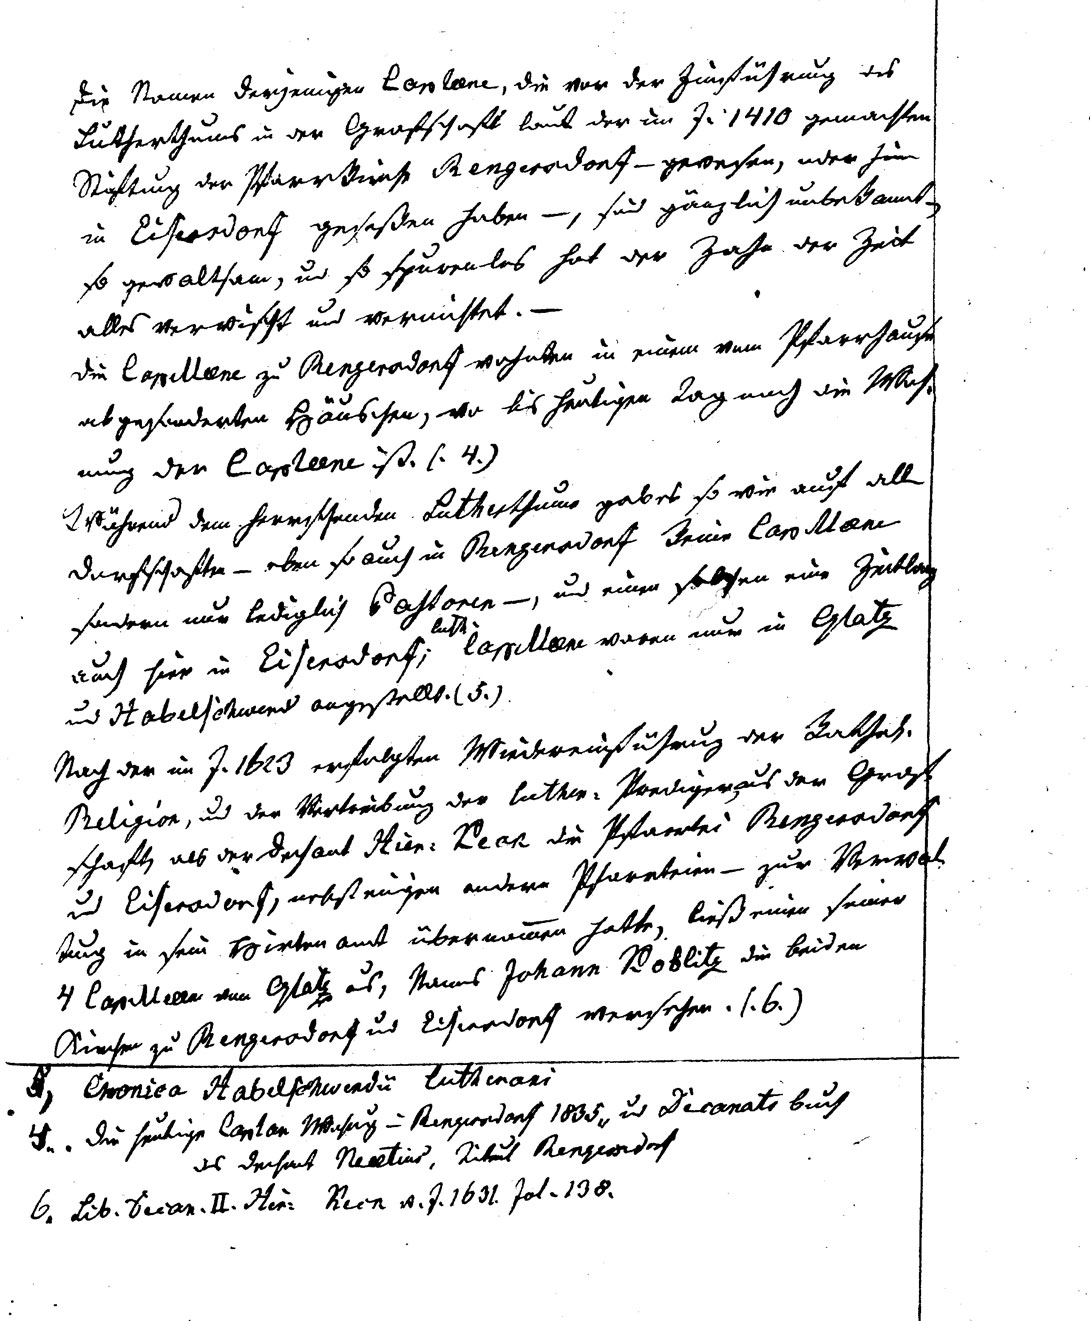 Die Namen derjenigen Caplæne, die vor der Einführung des
Lutherthums in der Grafschaft laut der im J: 1410 gemachten
Stiftung der Pfarrkirche Rengersdorf – gewesen, oder hier
in Eisersdorf gesessen haben –, sind gänzlich unbekannt –
so gewaltsam, und so spurenlos hat der Zahn der Zeit
alles verwischt und vernichtet. –
Die Capellæne zu Rengersdorf wohnten in einem vom Pfarrhause
abgesonderten Häuschen, wo bis heutigen Tag noch die Woh-
nung der Caplæne ist. (: 4.)
Während dem herrschenden Lutherthume gab es so wie auf all
Dorfschaften – eben so auch in Rengersdorf keine Capellæne
sondern nur lediglich Pastoren –, und einen solchen eine Zeitlang
auch hier in Eisersdorf; luth: Capellæne waren nur in Glatz
und Habelschwerd angestellt. (5.)
Nach der im J. 1623 erfolgten Wiedereinführung der Kathol.
Religion, und der Vertreibung der luther: Prediger aus der Graf-
schaft, als der Dechant Hier: Keck die Pfarrtei Rengersdorf
und Eisersdorf, nebst einigen andern Pfarrteien – zur Verwal-
tung in sein Hirtenamt übernommen hatte, ließ einen seiner
4 Capellæne von Glatz aus, Namens Johann Koblitz die beiden
Kirchen zu Rengersdorf und Eisersdorf versehen. (: 6.)
5, Cronica Habelschwerdii Lutherani
4.. Die heutige Caplan Wohnung in Rengersdorf 1835,, und Decanats buch
des Dechant Titul Rengersdorf
6. Lib. Decan. II. Hier: Keck a. J. 1631. fol. 138.